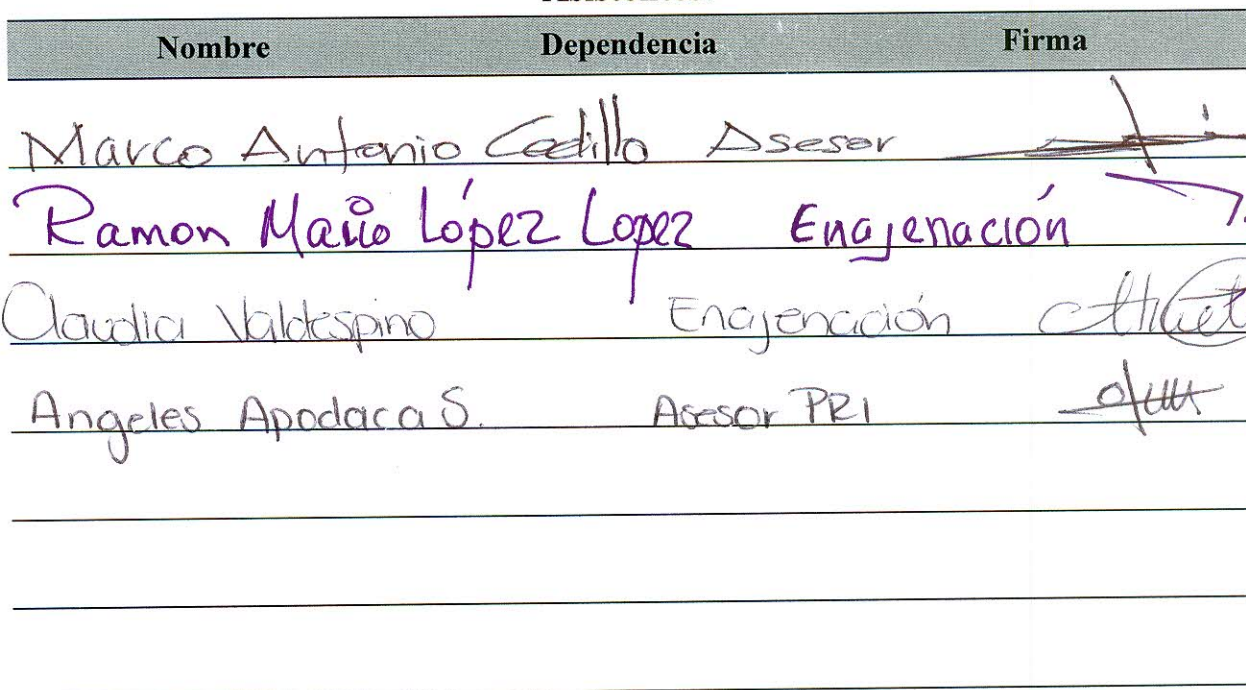 Nombre Dependencia Firma
Marco Antonio Cedillo Asesor
Ramon Mario López Lopez Enajenación
Claudia Valdespino Enajenación
Angeles Apodaca S. Asesor PRI